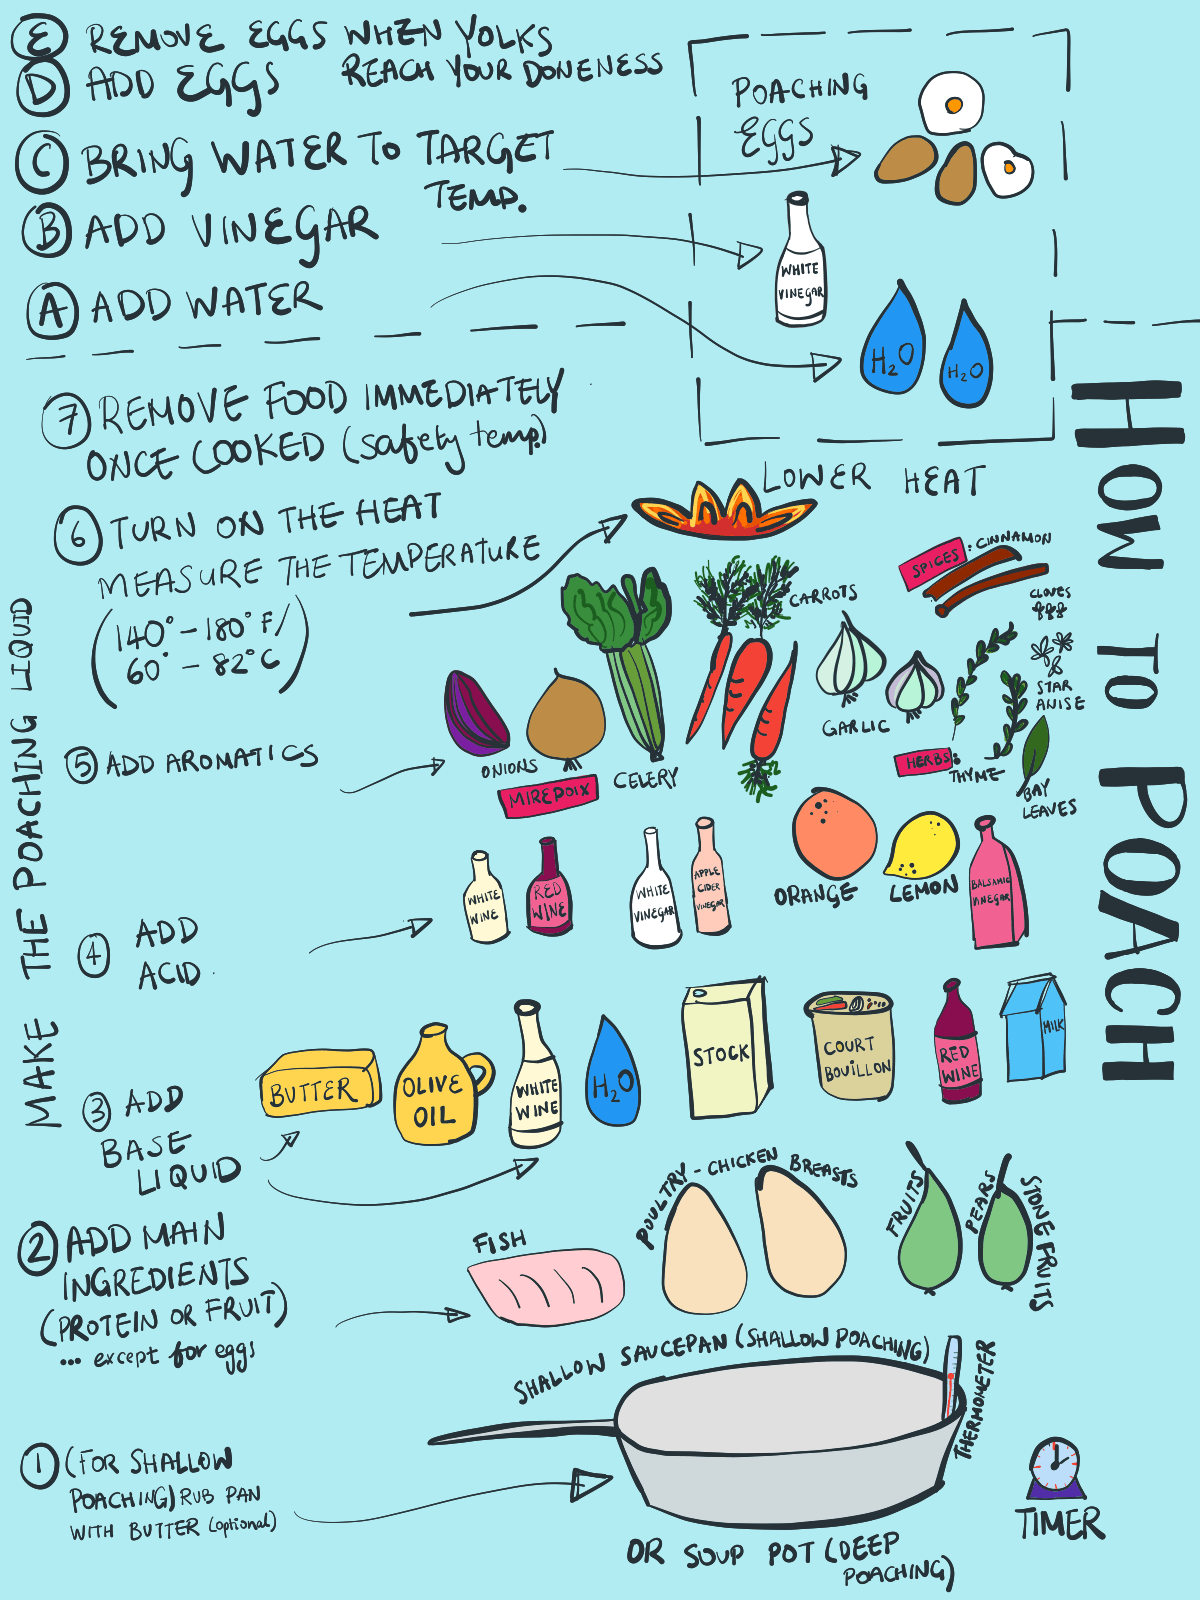 E REMOVE EGGS WHEN YOLKS
REACH YOUR DONENESS
D ADD EGGS
C BRING WATER TO TARGET
TEMP.
B ADD VINEGAR
A ADD WATER
POACHING
EGGS
WHITE
VINEGAR
H2O
H2O
HOW TO POACH
7 REMOVE FOOD IMMEDIATELY
ONCE COOKED (safety temp.)
6 TURN ON THE HEAT
MEASURE THE TEMPERATURE
(140° - 180° F/
60° - 82° C)
LOWER HEAT
MAKE THE POACHING LIQUID
5 ADD AROMATICS
ONIONS
MIREPOIX
CELERY
CARROTS
GARLIC
SPICES: CINNAMON
CLOVES
STAR
ANISE
HERBS:
THYME
BAY
LEAVES
4 ADD
ACID
WHITE
WINE
RED
WINE
WHITE
VINEGAR
APPLE
CIDER
VINEGAR
ORANGE
LEMON
BALSAMIC
VINEGAR
3 ADD
BASE
LIQUID
BUTTER
OLIVE
OIL
WHITE
WINE
H2O
STOCK
COURT
BOUILLON
RED
WINE
MILK
2 ADD MAIN
INGREDIENTS
(PROTEIN OR FRUIT)
... except for eggs
FISH
POULTRY - CHICKEN BREASTS
FRUITS
PEARS
STONE FRUITS
1 (FOR SHALLOW
POACHING) RUB PAN
WITH BUTTER (optional)
SHALLOW SAUCEPAN (SHALLOW POACHING)
THERMOMETER
OR SOUP POT (DEEP
POACHING)
TIMER